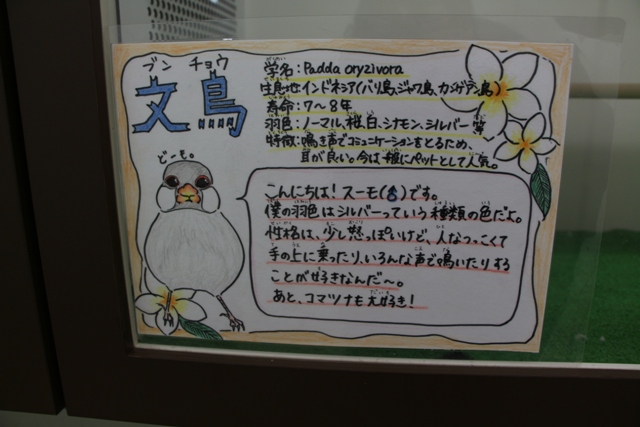 ブン チョウ
文鳥
学名:Padda oryzivora
生息地:インドネシア(バリ島、ジャワ島、カンゲアン島)
寿命:7〜8年
羽色:ノーマル、桜、白、シナモン、シルバー等
特徴:鳴き声でコミュニケーションをとるため、
耳が良い。今は一般にペットとして人気。
どーも。
こんにちは!スーモ(♂)です。
僕の羽色はシルバーっていう種類の色だよ。
性格は、少し怒っぽいけど、人なつっこくて
手の上に乗ったり、いろんな声で鳴いたりする
ことが好きなんだ〜。
あと、コマツナも大好き!